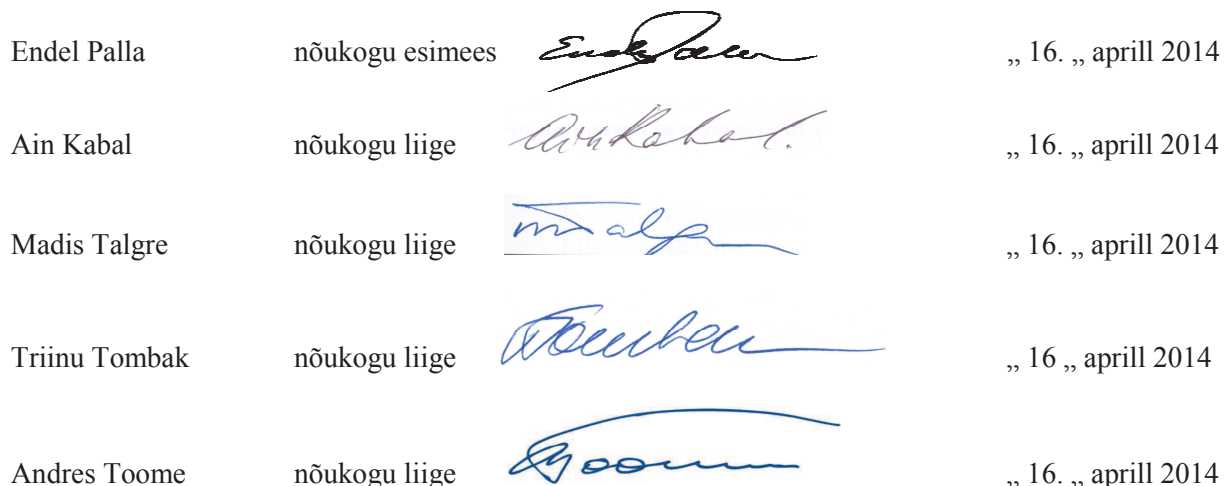 Endel Palla nõukogu esimees ,, 16. ,, aprill 2014
Ain Kabal nõukogu liige Ain Kabal. ,, 16. ,, aprill 2014
Madis Talgre nõukogu liige ,, 16. ,, aprill 2014
Triinu Tombak nõukogu liige ,, 16 ,, aprill 2014
Andres Toome nõukogu liige ,, 16. ,, aprill 2014